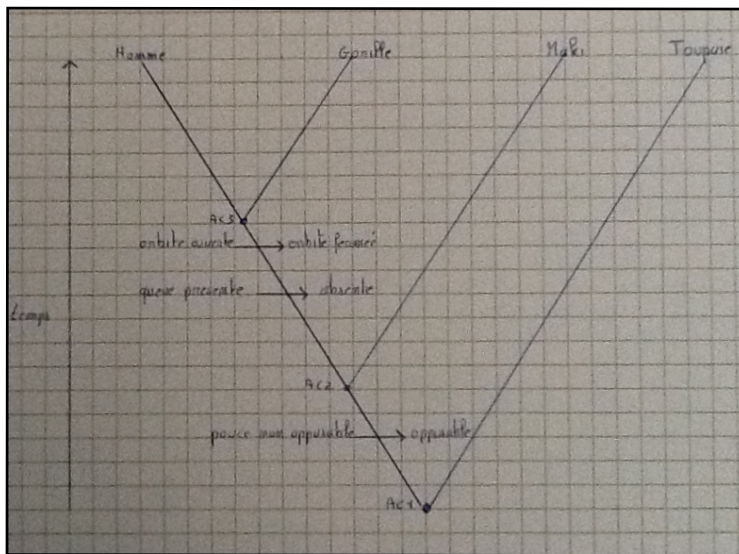 Homme Gorille Maki Toupaie
AC3
orbite ouverte → orbite fermée
queue présente → absente
temps
AC2
pouce non opposable → opposable
AC1